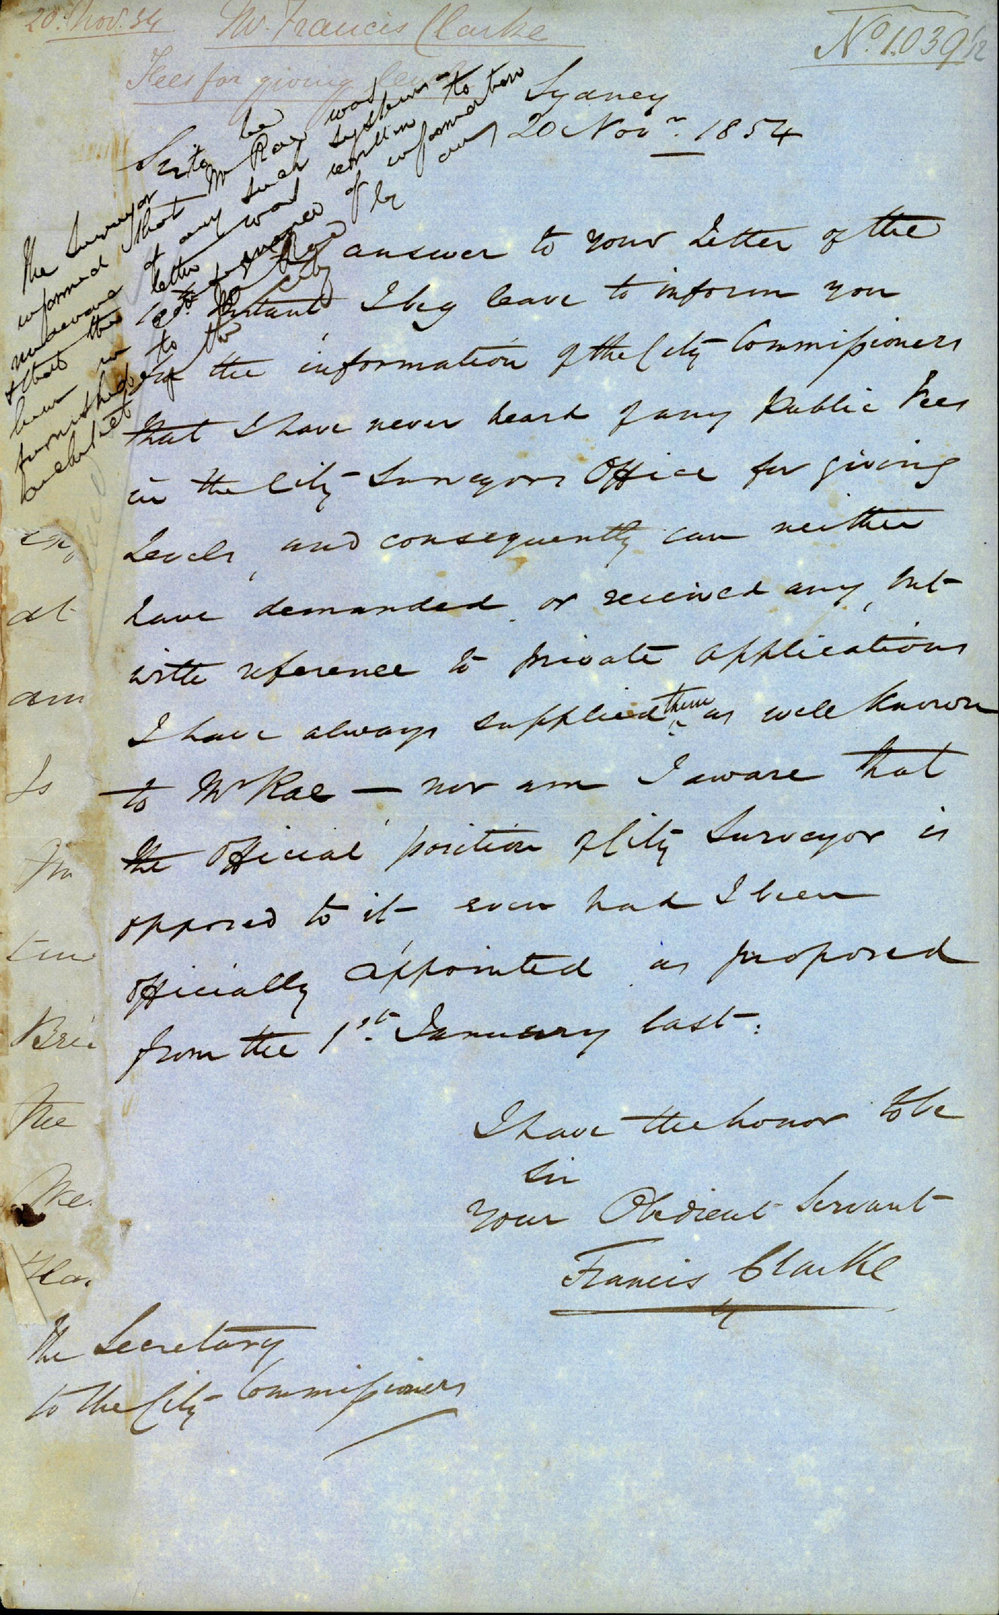 20. Nov. 54 Mr. Francis Clarke
No. 1039/2
Fees for giving levels
Sydney
20 Novr. 1854
Sir
The Surveyor to be
informed that Mr Rae was
unaware of any such system
& that the letter was written to
him in consequence of information
furnished to Mr Rae by
of the City
answer to your Letter of the
Instant I beg leave to inform you
for the information of the City Commissioners
that I have never heard of any Public Fees
in the City Surveyors Office for giving
Levels, and consequently can neither
have demanded or received any, but
with reference to private applications
I have always supplied them as well known
to Mr Rae — nor am I aware that
the Official position of City Surveyor is
opposed to it even had I been
officially appointed as proposed
from the 1st. January last.
I have the honor to be
Sir
Your Obedient Servant
Francis Clarke
The Secretary
to the City Commissioners
at
am
Is
The